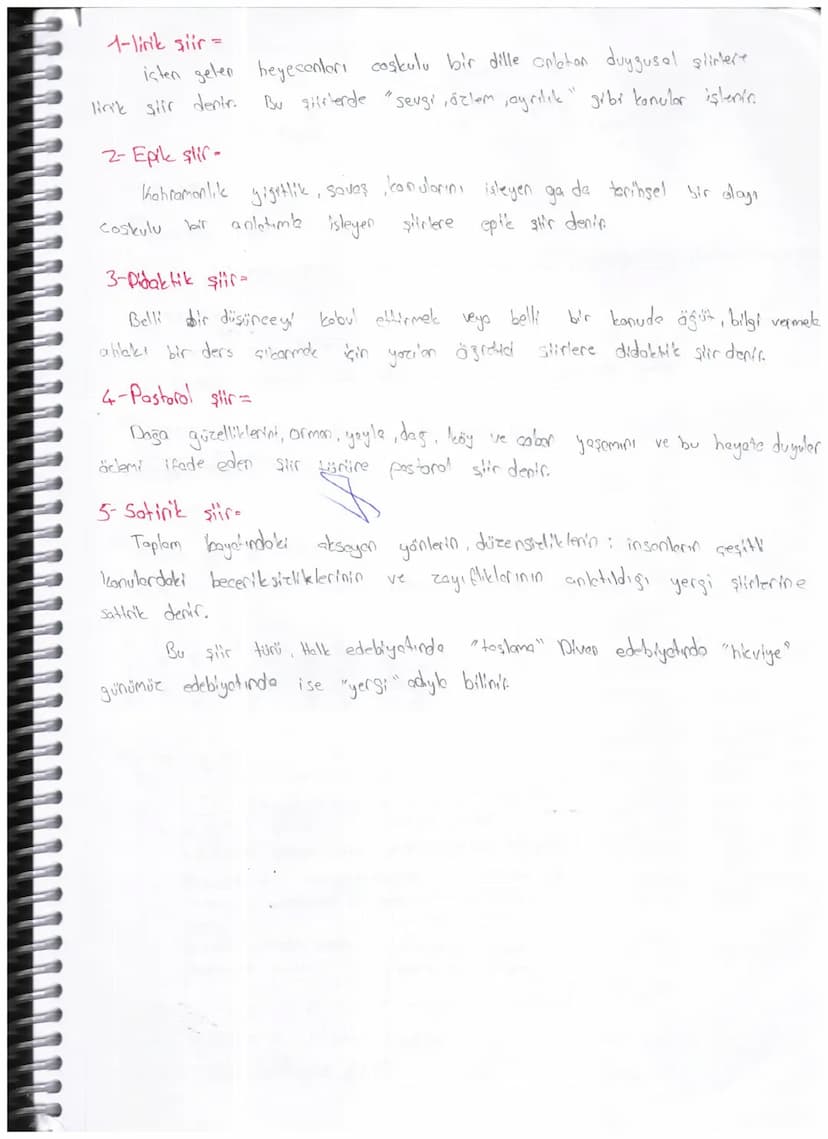 1-lirik şiir =
içten gelen heyecanları coşkulu bir dille anlatan duygusal şiirlere
lirik şiir denir. Bu şiirlerde "sevgi, özlem, ayrılık" gibi konular işlenir.
2- Epik şiir -
Kahramanlık yiğitlik, savaş, konularını işleyen ya da tarihsel bir olayı
coşkulu bir anlatımla işleyen şiirlere epik şiir denir.
3-Didaktik şiir =
Belli bir düşünceyi kabul ettirmek veya belli bir konuda öğüt, bilgi vermek
ahlaki bir ders çıkarmak için yazılan öğretici şiirlere didaktik şiir denir.
4-Pastoral şiir =
Doğa güzelliklerini, orman, yayla, dağ, köy ve çoban yaşamını ve bu hayata duyulan
özlemi ifade eden şiir türüne pastoral şiir denir.
5- Satirik şiir =
Toplam hayatındaki aksayan yönlerin, düzensizliklerin; insanların çeşitli
konulardaki beceriksizliklerinin ve zayıflıklarının anlatıldığı yergi şiirlerine
satirik denir.
Bu şiir türü, Halk edebiyatında "taşlama" Divan edebiyatında "hicviye"
günümüz edebiyatında ise "yergi" adıyla bilinir.